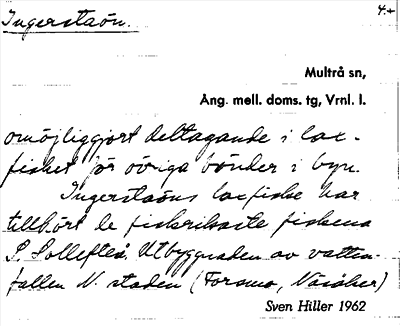 Ingerstaön.
4.+
Multrå sn,
Ång. mell. doms. tg, Vrnl. l.
omöjliggjort deltagande i lax-
fisket för övriga bönder i byn.
Ingerstaöns laxfiske har
tillhört de fiskrikaste fiskena
i Sollefteå. Utbyggnaden av vatten-
fallen N. staden (Forsmo, Näsåker)
Sven Hiller 1962